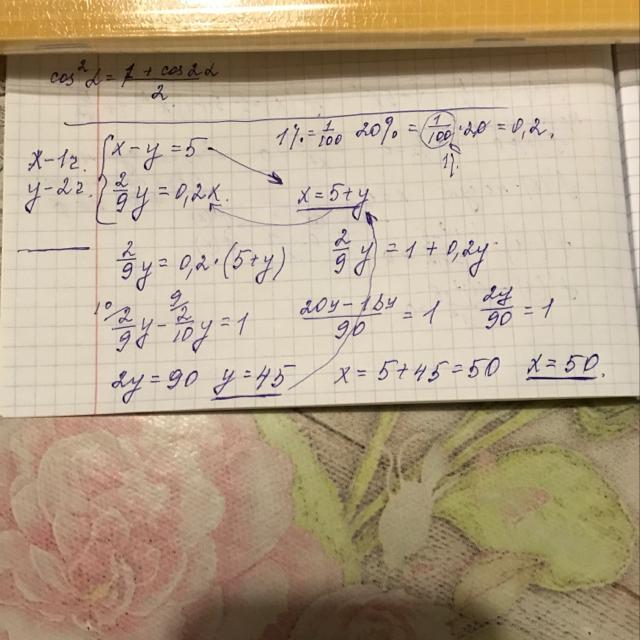 cos²α = 1 + cos2α / 2
1% = 1/100 20% = 1/100 · 20 = 0,2.
1%
x – 1 ч. { x – y = 5
y – 2 ч. { 2/9 y = 0,2x. x = 5 + y
2/9 y = 0,2 · (5 + y) 2/9 y = 1 + 0,2y
10/ 2/9 y – 9/ 2/10 y = 1 20y – 18y / 90 = 1 2y/90 = 1
2y = 90 y = 45 x = 5 + 45 = 50 x = 50.